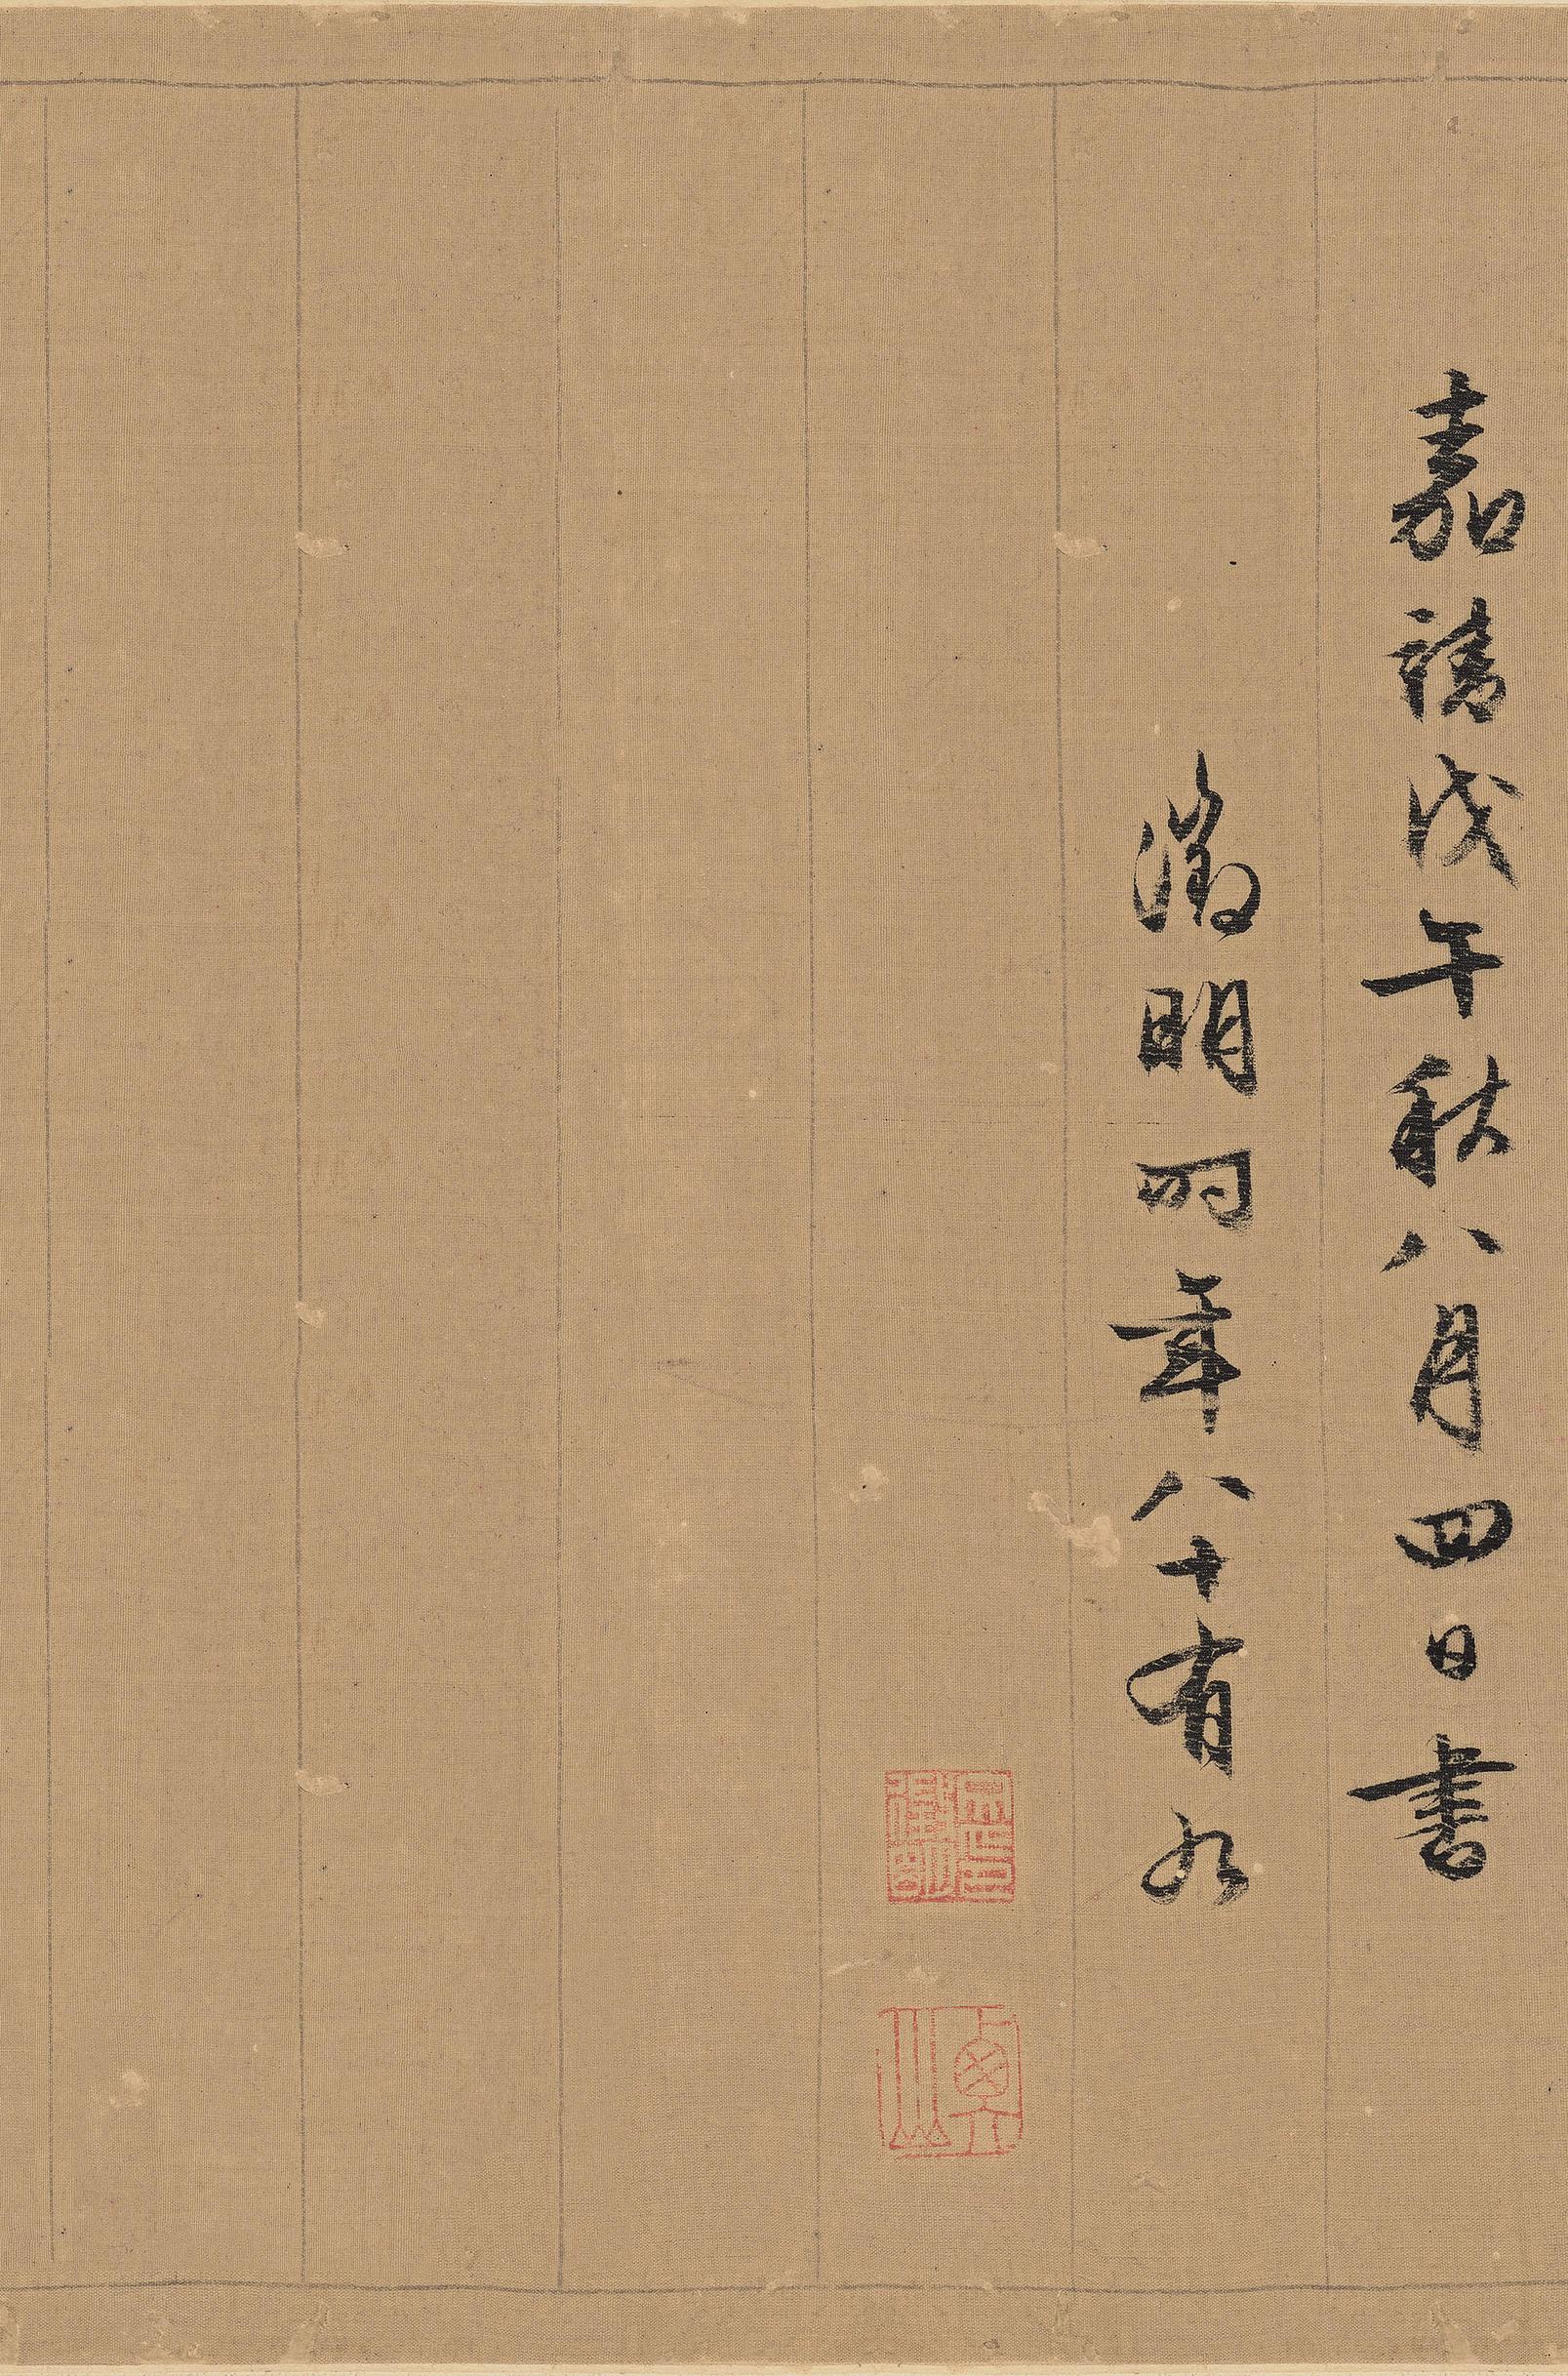 嘉靖戊午秋八月四日書
徵明時年八十有九